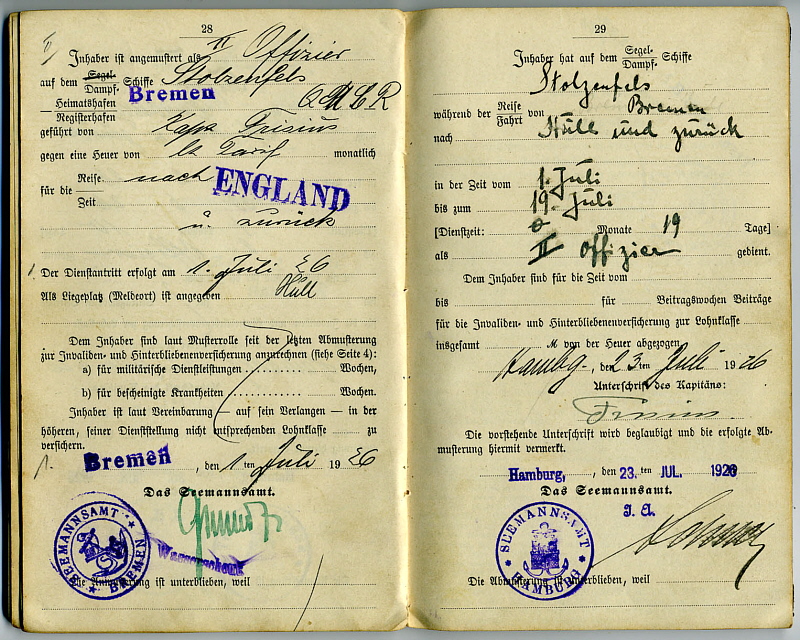 28
Inhaber ist angemustert als II Offizier
auf dem Segel- Dampf- Schiffe Stolzenfels
Heimatshafen Registerhafen Bremen QMLR
geführt von Kapt. Frisius
gegen eine Heuer von lt Tarif monatlich
für die Reise Zeit nach ENGLAND
u. zurück
Der Dienstantritt erfolgt am 1. Juli 26
Als Liegeplatz (Meldeort) ist angegeben Hull
Dem Inhaber sind laut Musterrolle seit der letzten Abmusterung
zur Invaliden- und Hinterbliebenenversicherung anzurechnen (siehe Seite 4):
a) für militärische Dienstleistungen Wochen,
b) für bescheinigte Krankheiten Wochen.
Inhaber ist laut Vereinbarung — auf sein Verlangen — in der
höheren, seiner Dienststellung nicht entsprechenden Lohnklasse zu
versichern.
Bremen, den 1ten Juli 1926
Das Seemannsamt.
SEEMANNSAMT BREMEN
Wasserschout
Die Anmusterung ist unterblieben, weil
29
Inhaber hat auf dem Segel- Dampf- Schiffe
Stolzenfels
während der Reise Fahrt von Bremen
nach Hull und zurück
in der Zeit vom 1. Juli
bis zum 19. Juli
[Dienstzeit: 0 Monate 19 Tage]
als II Offizier gedient.
Dem Inhaber sind für die Zeit vom
bis für Beitragswochen Beiträge
für die Invaliden- und Hinterbliebenenversicherung zur Lohnklasse
insgesamt M von der Heuer abgezogen.
Hambg., den 23ten Juli 1926
Unterschrift des Kapitäns:
Frisius.
Die vorstehende Unterschrift wird beglaubigt und die erfolgte Ab-
musterung hiermit vermerkt.
Hamburg, den 23.ten JUL. 1926
Das Seemannsamt.
J. A.
SEEMANNSAMT HAMBURG
Die Abmusterung ist unterblieben, weil